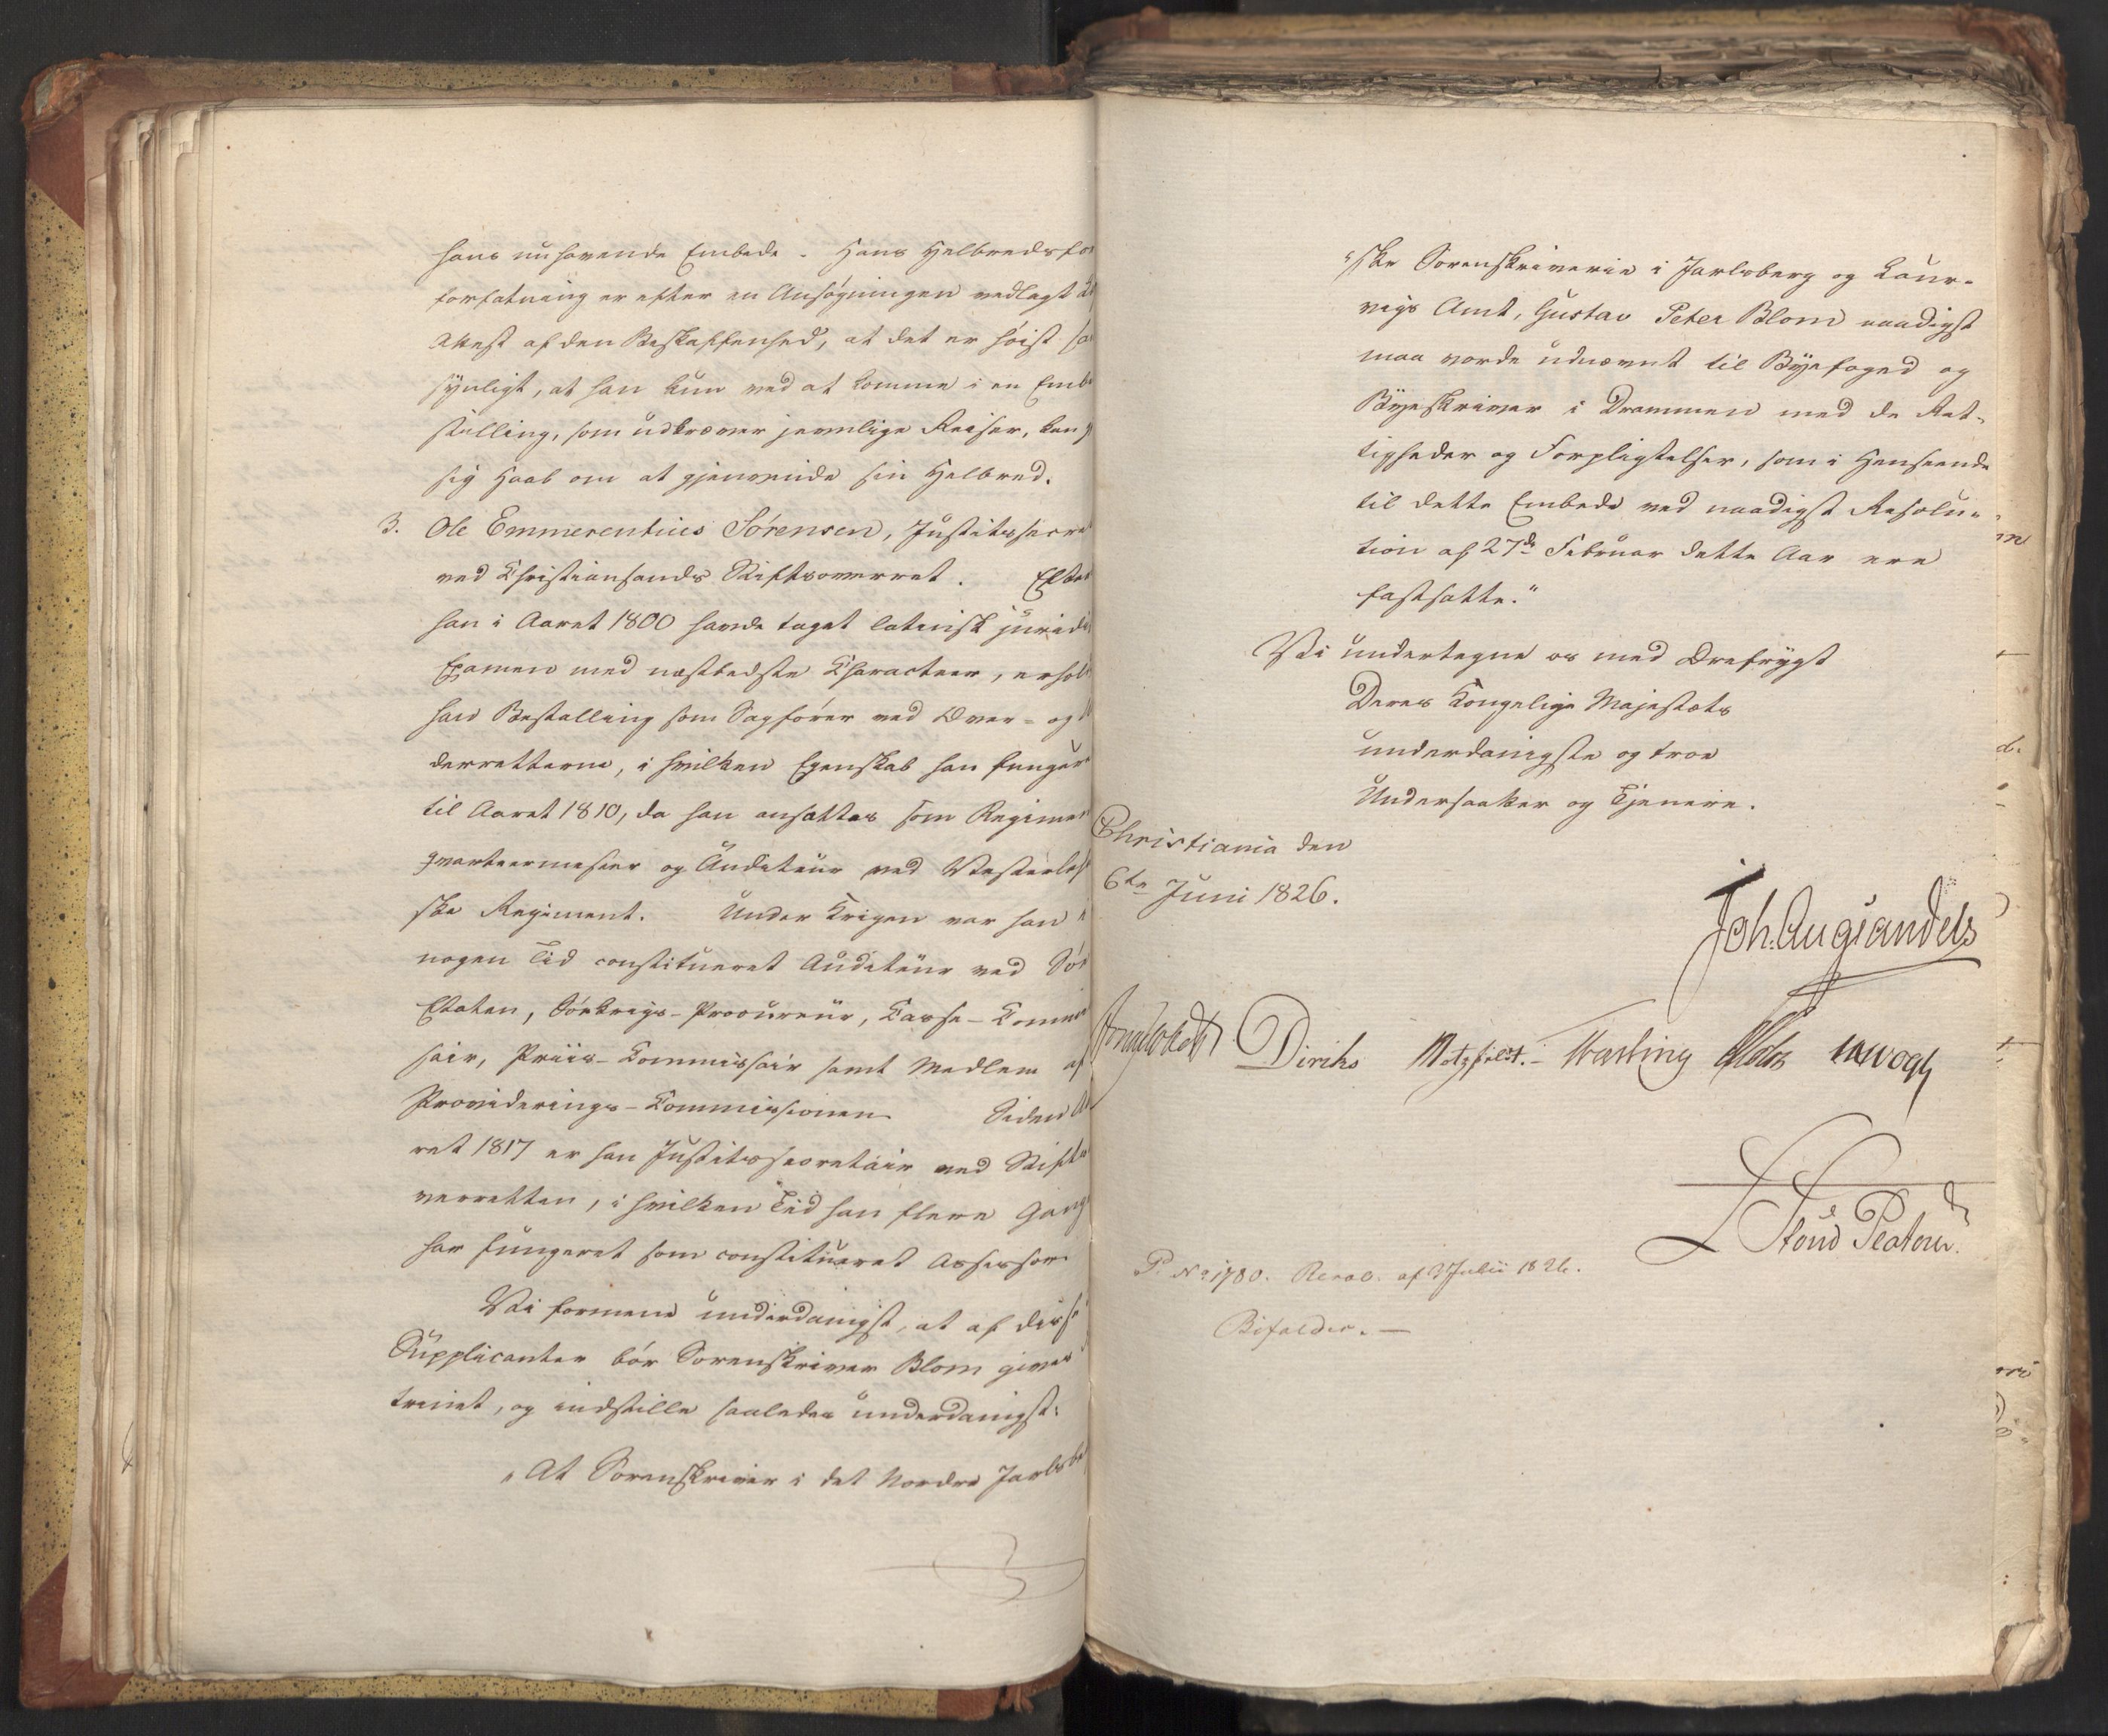 hans nuhavende Embede. Hans Helbredsfor
forfatning er efter en Ansøgningen vedlagt
Attest af den Beskaffenhed, at det er høist
synligt, at han kun ved at komme i en Emb
stilling, som udkræver jevnlige Reiser, kan
sig Haab om at gjenvinde sin Helbred.
3. Ole Emmerentius Sørensen, Justitssecre
ved Christiansands Stiftsoverret. Efter
han i Aaret 1800 havde taget latinsk juridi
Examen med næstbedste Characteer, erhol
han Bestalling som Sagfører ved Over- og
derretterne, i hvilken Egenskab han funger
til Aaret 1810, da han ansattes som Regimen
qvarteermester og Auditeur ved Vesterleh
ske Regiment. Under Krigen var han
nogen Tid constitueret Auditeur ved Søe
Etaten, Søekrigs-Procureur, Casse-Commi
sair, Priis-Commissair samt Medlem af
Provideerings-Commissionen. Siden A
ret 1817 er han Justitssecretair ved Stifts
verretten, i hvilken Tid han flere Gang
har fungeret som constitueret Assessor
Vi formene underdanigst, at af disse
Supplicanter bør Sorenskriver Blom gives
trinet, og indstille saaledes underdanigst:
"At Sorenskriver i det Nordre Jarlsbe
"ske Sorenskriverie i Jarlsberg og Laur-
vigs Amt, Gustav Peter Blom naadigst
maa vorde udnævnt til Byefoged og
Byeskriver i Drammen med de Ret-
tigheder og Forpligtelser, som i Henseende
til dette Embede ved naadigst Resolu-
tion af 27de Februar dette Aar ere
fastsatte."
Vi undertegne os med Ærefrygt
Deres Kongelige Majestæts
underdanigste og troe
Undersaatter og Tjenere.
Christiania den
6te Juni 1826.
Joh. Aug Sandels
Diriks Motzfeldt. Vogt
P. No 1780. Resol. af 3 Julii 1826.
Bifaldes.